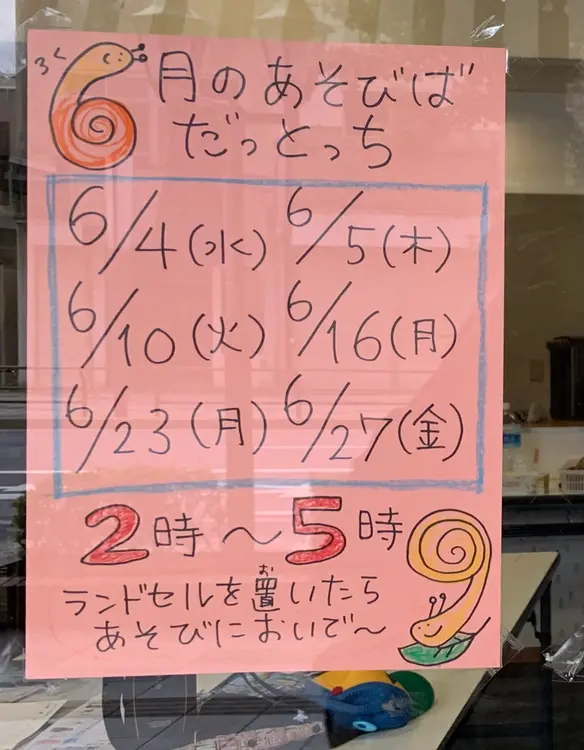 ろく
6月のあそびば
だっとっち
6/4(水) 6/5(木)
6/10(火) 6/16(月)
6/23(月) 6/27(金)
2時〜5時
ランドセルを置いたら
お
あそびにおいで〜